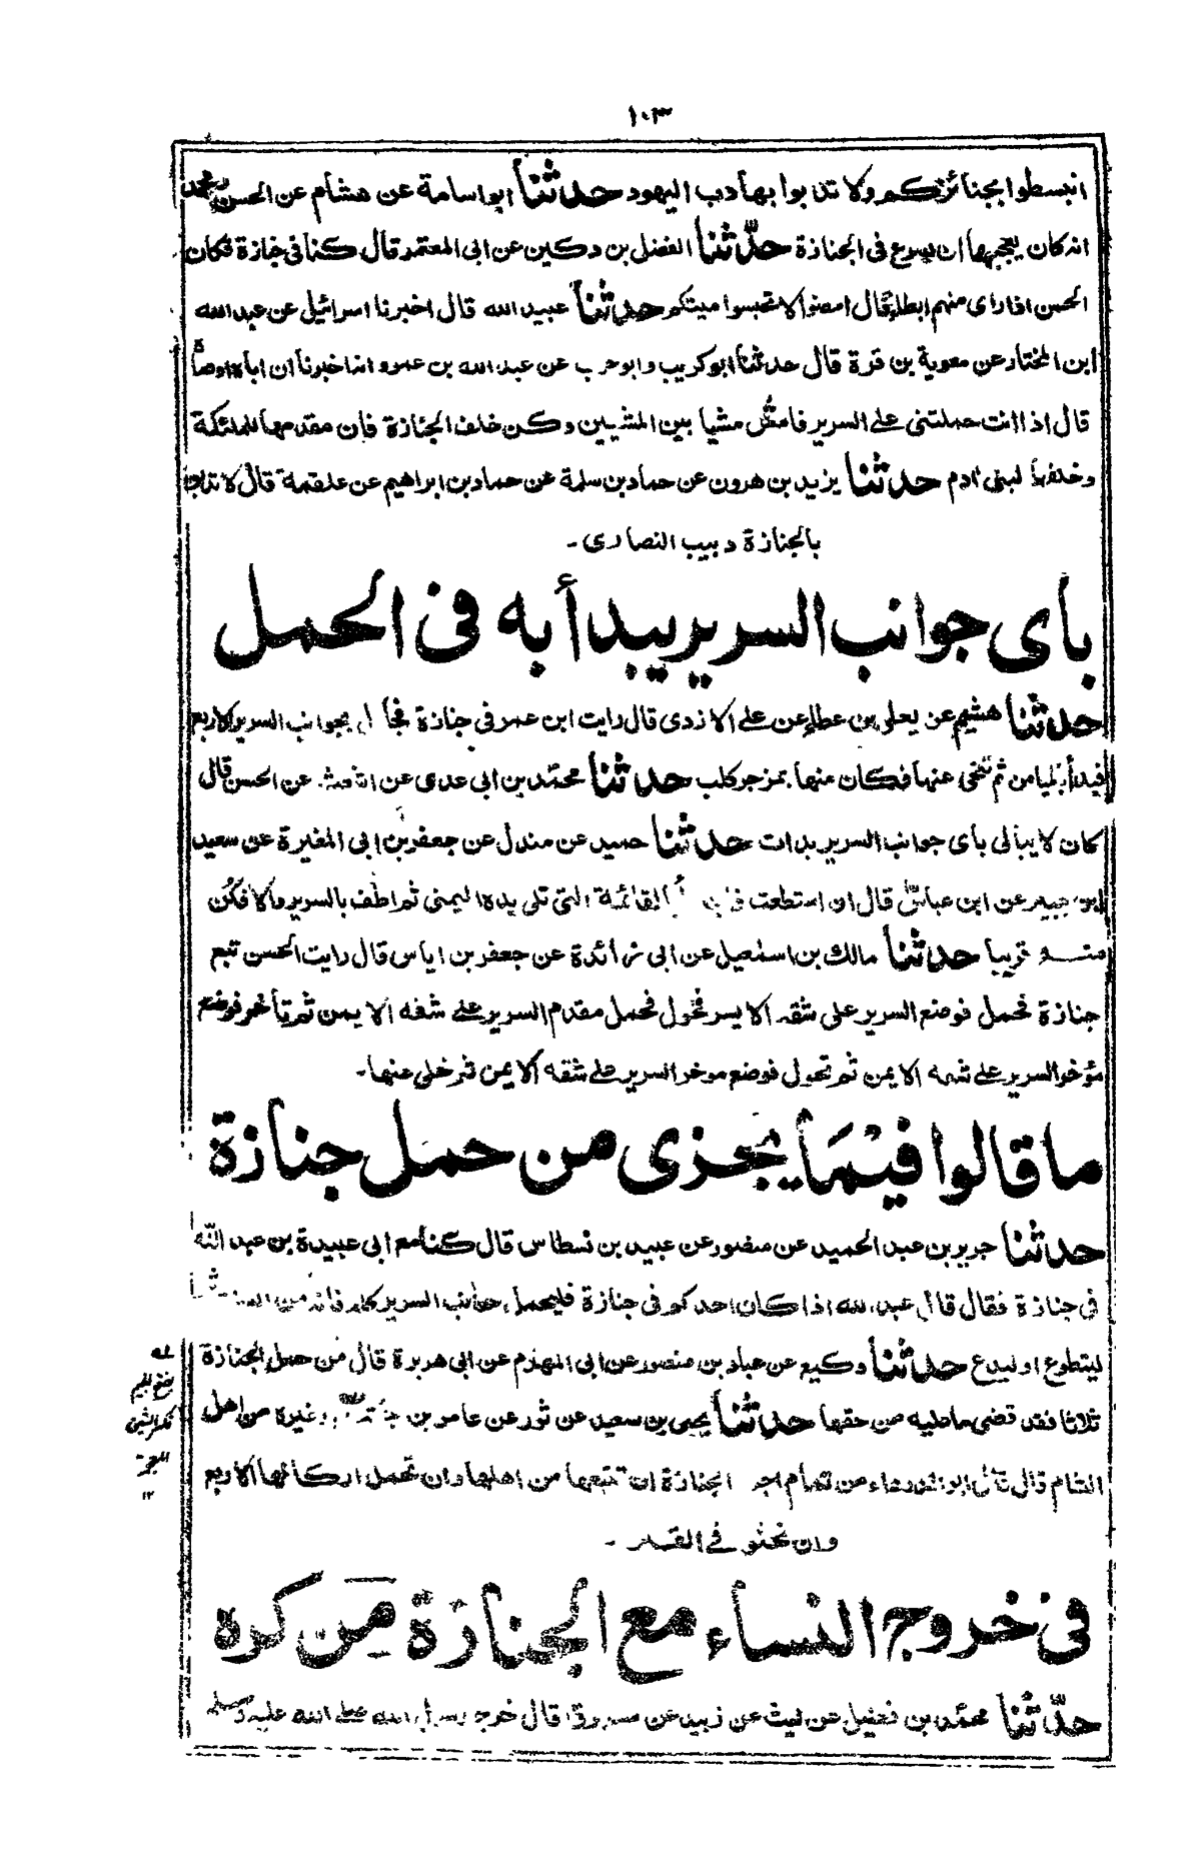 ١٠٣
انبسطوا بجنائزكم ولا تدبوا بها دب اليهود حدثنا ابو اسامة عن هشام عن الحسن ومحمد
انه كان يعجبهما ان يسرع فى الجنازة حدّثنا الفضل بن دكين عن ابى المعتمر قال كنا فى جنازة فكان
الحسن اذا راى منهم ابطاء قال امضوا لا تحبسوا ميتكم حدثنا عبيد الله قال اخبرنا اسرائيل عن عبد الله
ابن المختار عن معوية بن قرة قال حدثنا ابو كريب وابو حرب عن عبد الله بن عمرو انه اخبرنا ان اباه اوصاه
قال اذا انت حملتنى على السرير فامش مشيا بين المشيين وكن خلف الجنازة فان مقدمها للملئكة
وخلفها لبنى ادم حدثنا يزيد بن هرون عن حماد بن سلمة عن حماد بن ابراهيم عن علقمة قال لا تدبوا
بالجنازة دبيب النصارى -
باى جوانب السرير يبدأ به فى الحمل
حدثنا هشيم عن يعلى بن عطاء عن على الازدى قال رايت ابن عمر فى جنازة بجوانب السرير الاربع
فيدأ بالميامن ثم تنحى عنها فكان منها بمزجر كلب حدثنا محمّد بن ابى عدى عن اشعث عن الحسن قال
كان لا يبالى باى جوانب السرير بدات حدثنا حميد عن مندل عن جعفر بن ابى المغيرة عن سعيد
ابن جبير عن ابن عباس قال ان استطعت بالقائمة التى تلى يده اليمنى ثم اطف بالسرير والا فكن
منه قريبا حدثنا مالك بن اسمعيل عن ابى زائدة عن جعفر بن اياس قال رايت الحسن تبع
جنازة فحمل فوضع السرير على شقه الايسر فحول فحمل مقدم السرير على شقه الايمن ثم تأخر فوضع
مؤخر السرير على شقه الايمن ثم تحول فوضع موخر السرير على شقه الايمن ثم خلى عنها -
ما قالوا فيما يجزى من حمل جنازة
حدثنا جرير بن عبد الحميد عن منصور عن عبيد بن نسطاس قال كنا مع ابى عبيدة بن عبد الله
فى جنازة فقال قال عبد الله اذا كان احدكم فى جنازة فليحمل بجوانب السرير كله فانه من السنة ثم
ليتطوع او ليدع حدثنا وكيع عن عباد بن منصور عن ابى المهزم عن ابى هريرة قال من حمل الجنازة
ثلاثا فقد قضى ما عليه من حقها حدثنا يحيى بن سعيد عن ثور عن عامر بن وغيره من اهل
الشام قال قال ابو الدرداء من تمام اجر الجنازة ان تتبعها من اهلها وان تحمل اركانها الاربع
وان تحثو فى القبر -
فى خروج النساء مع الجنازة من كره
حدّثنا محمّد بن فضيل عن ليث عن زبيد عن مسروق قال خرج رسول الله صلى الله عليه وسلم
له
بفتح الجيم
وكسر الشين
المعجمة
١٢